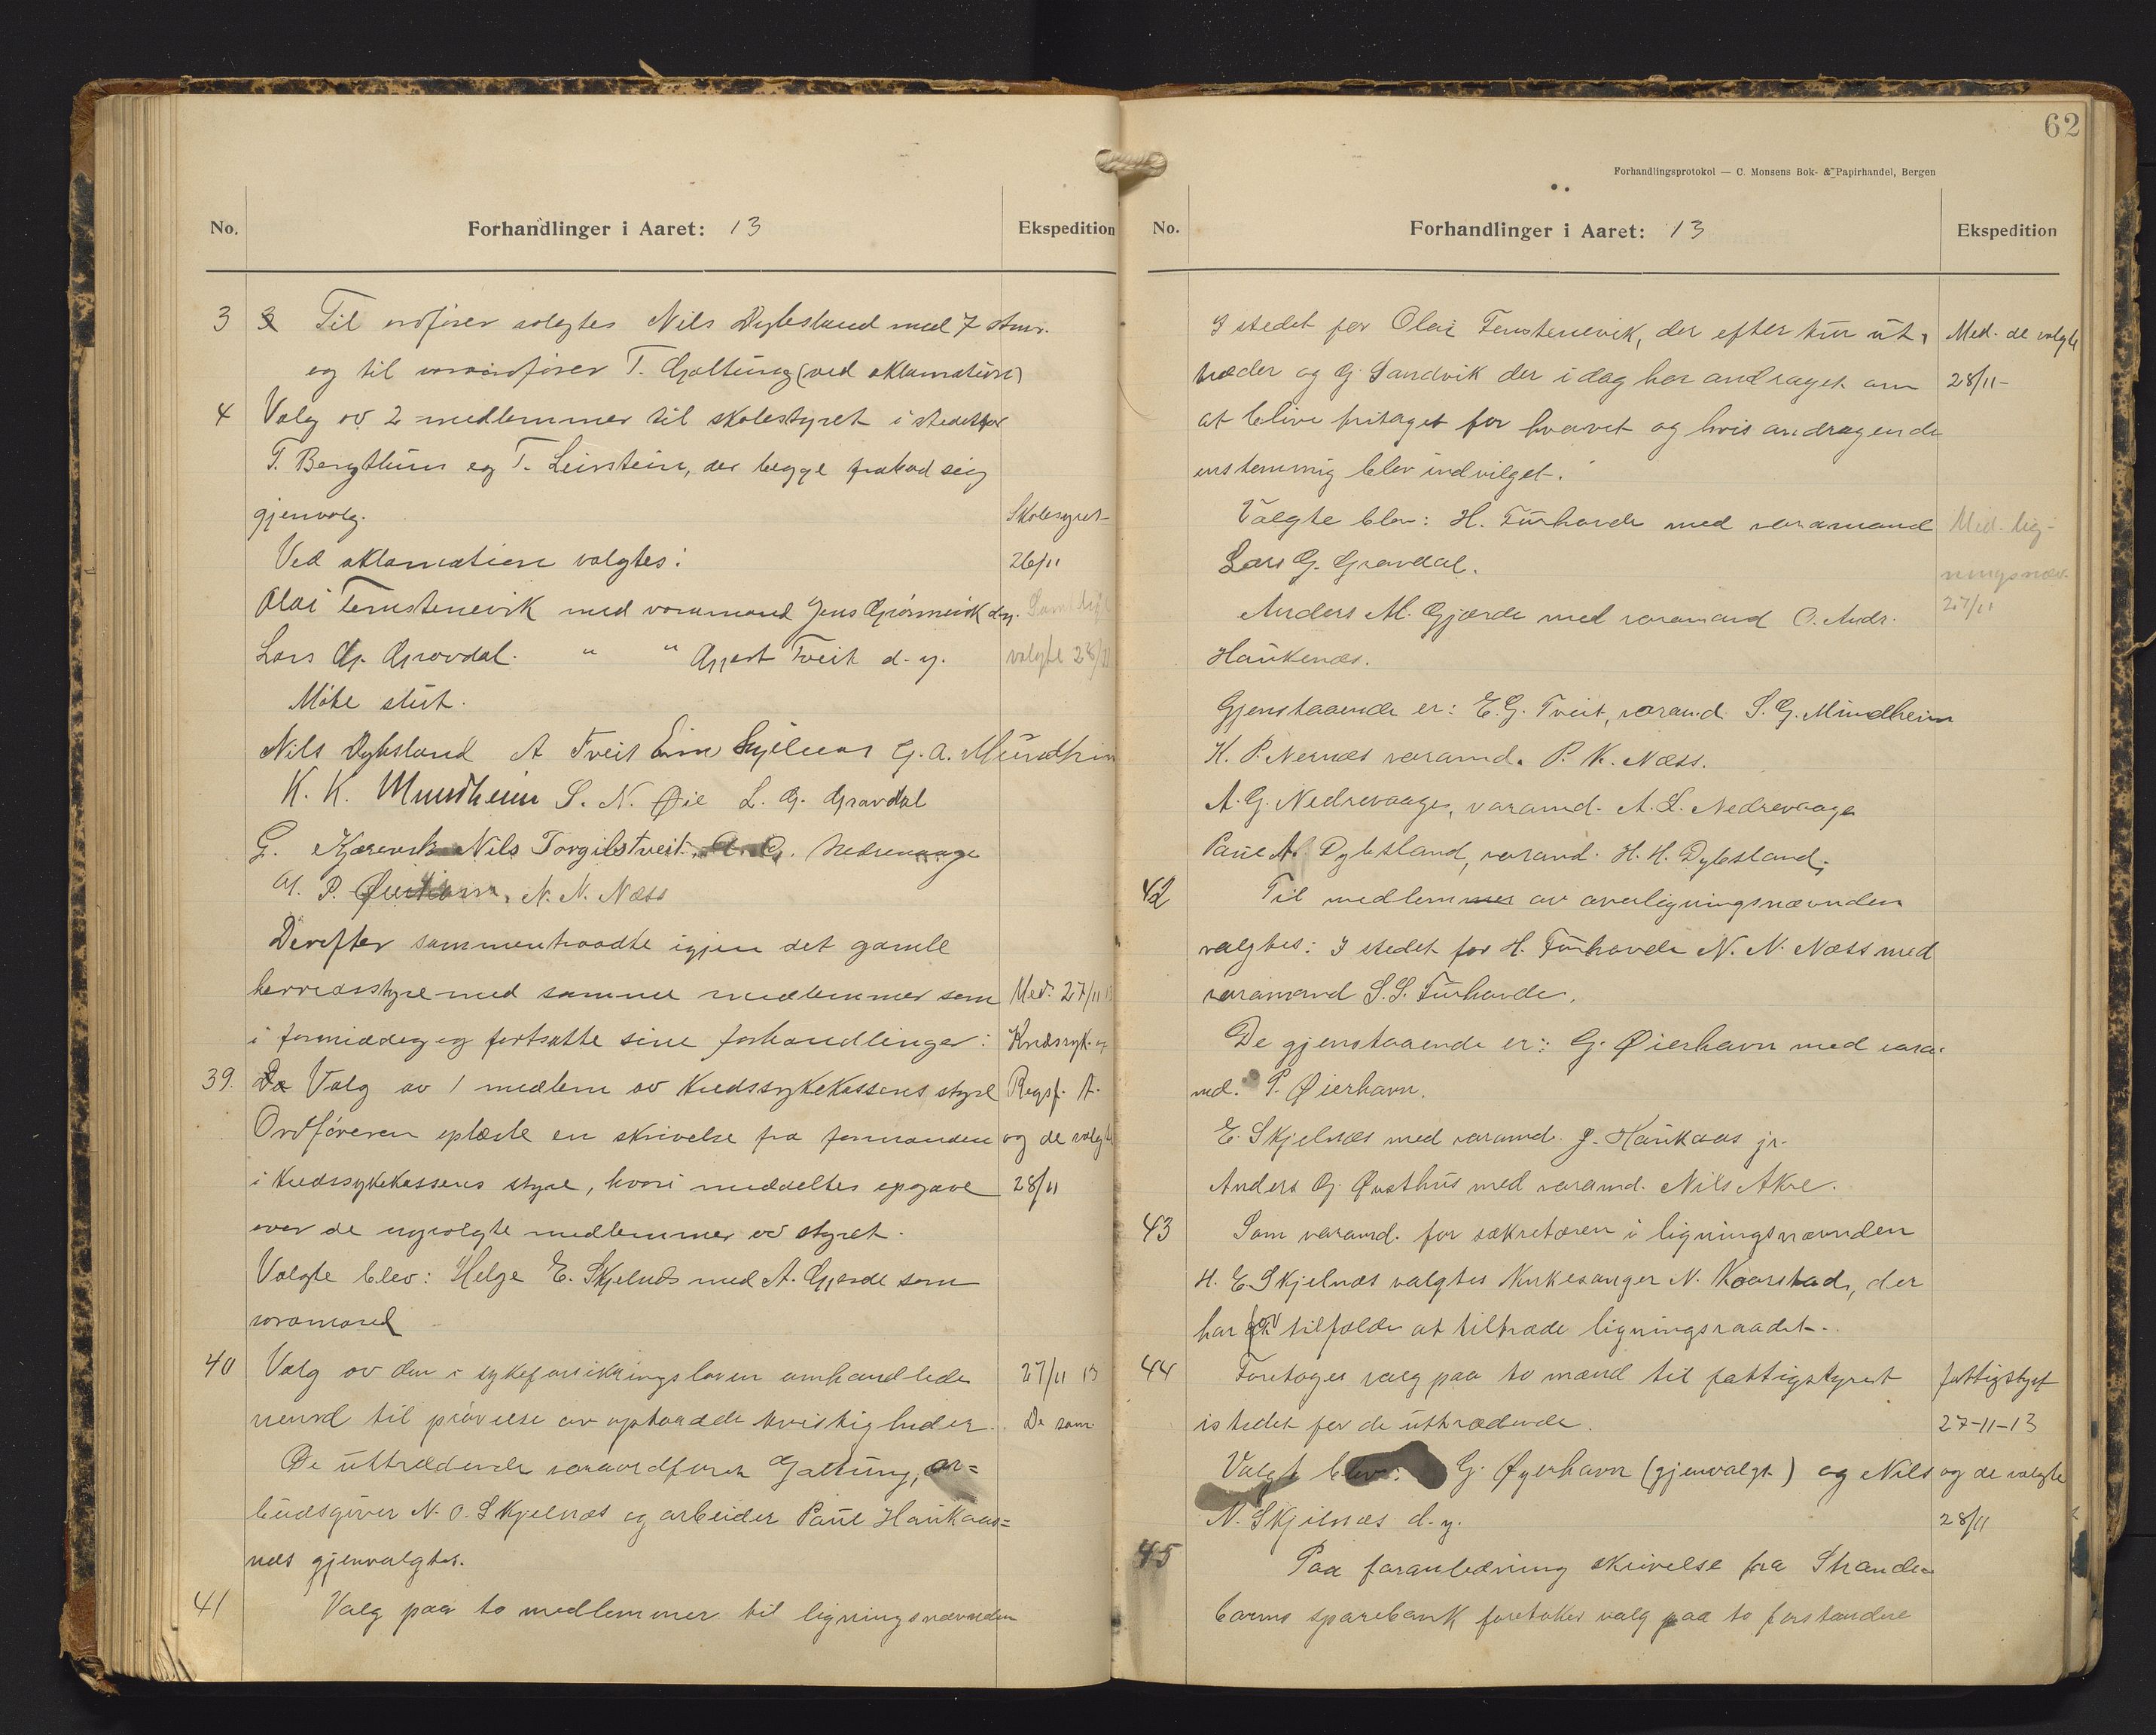 No. Forhandlinger i Aaret: 13 Ekspedition
3 Til ordfører valgtes Nils Dybsland med 7 stmr.
og til varaordfører T. Galtung (ved aklamation)
4 Valg av 2 medlemmer til skolestyret i stedetfor
T. Bergthun og T. Leinstein, der begge frabad sig
gjenvalg. Skolestyret
Ved aklamation valgtes: 26/11
Olai Tenstenevik med varamand Jens Grønnevik d.y. Samt de
Lars G. Gravdal. " " Aggest Tveit d. y. valgte 28/11
Møte slut.
Nils Dybsland A Tveit Ein Skjelnes G. A. Mundheim
K. K. Mundheim S. N. Øie L. G. Gravdal
G. Kjærevik Nils Torgilstveit. A. G. Nedrevaage
P. Øierhavn. N. N. Næss
Derefter sammentraadte igjen det gamle
herredsstyre med samme medlemmer som Med. 27/11 13
i formiddag og fortsatte sine forhandlinger: Kredssyk. og
39. Valg av 1 medlem av Kredssykekassens styre Regsf. A.
Ordføreren oplæste en skrivelse fra formanden og de valgte
i Kredssykekassens styre, hvori meddeltes opgave 28/11
over de nyvalgte medlemmer av styret.
Valgte blev: Helge E. Skjelnes med A. Gjerde som
varamand
40 Valg av den i sykeforsikringsloven omhandlede 27/11 13
nevnd til prøvelse av opstaadde tvistigheder. De som
De uttrædende varaordfører Galtung, ar=
beidsgiver N. O. Skjelnæs og arbeider Paul Haukaas=
næs gjenvalgtes.
41 Valg paa to medlemmer til ligningsnævnden
62
Forhandlingsprotokol — C. Monsens Bok- & Papirhandel, Bergen
No. Forhandlinger i Aaret: 13 Ekspedition
I stedet for Olai Tenstenevik, der efter tur ut- Med. de valgte
træder og G. Sandvik der i dag har andraget om 28/11-
at blive fritaget for hvervet og hvis andragende
enstemmig blev indvilget.
Valgte blev: H. Turhovde med varamand Med. lig-
Lars G. Gravdal. ningsnæv.
Anders M. Gjærde med varamand O. Andr. 27/11
Haukenæs.
Gjenstaaende er: E. G. Tveit, varamd. S. G. Mundheim
K. P. Nernæs varamd. P. K. Næss.
A. G. Nedrevaage, varamd. A. L. Nedrevaage
Paul N. Dybsland, varamd. H. H. Dybsland.
42 Til medlemmer av overligningsnævnden
valgtes: I stedet for H. Turhovde N. N. Næss med
varamand S. S. Turhovde.
De gjenstaaende er: G. Øierhavn med vara-
md. P. Øierhavn.
E. Skjelnæs med varamd. J. Haukaas jr.
Anders G. Øvsthus med varamd. Nils Akre.
43 Som varamd. for sekretæren i ligningsnævnden
H. E. Skjelnæs valgtes Kirkesanger N. Kaarstad, der
har for tilfælde at tiltræde ligningsraadet.
44 Foretages valg paa to mænd til fattigstyret fattigstyret
istedet for de uttrædende. 27-11-13
Valgt blev: G. Øyerhavn (gjenvalgt) og Nils og de valgte
N. Skjelnæs d. y. 28/11
45 Paa foranledning skrivelse fra Strande-
barms sparebank foretokes valg paa to forstandere